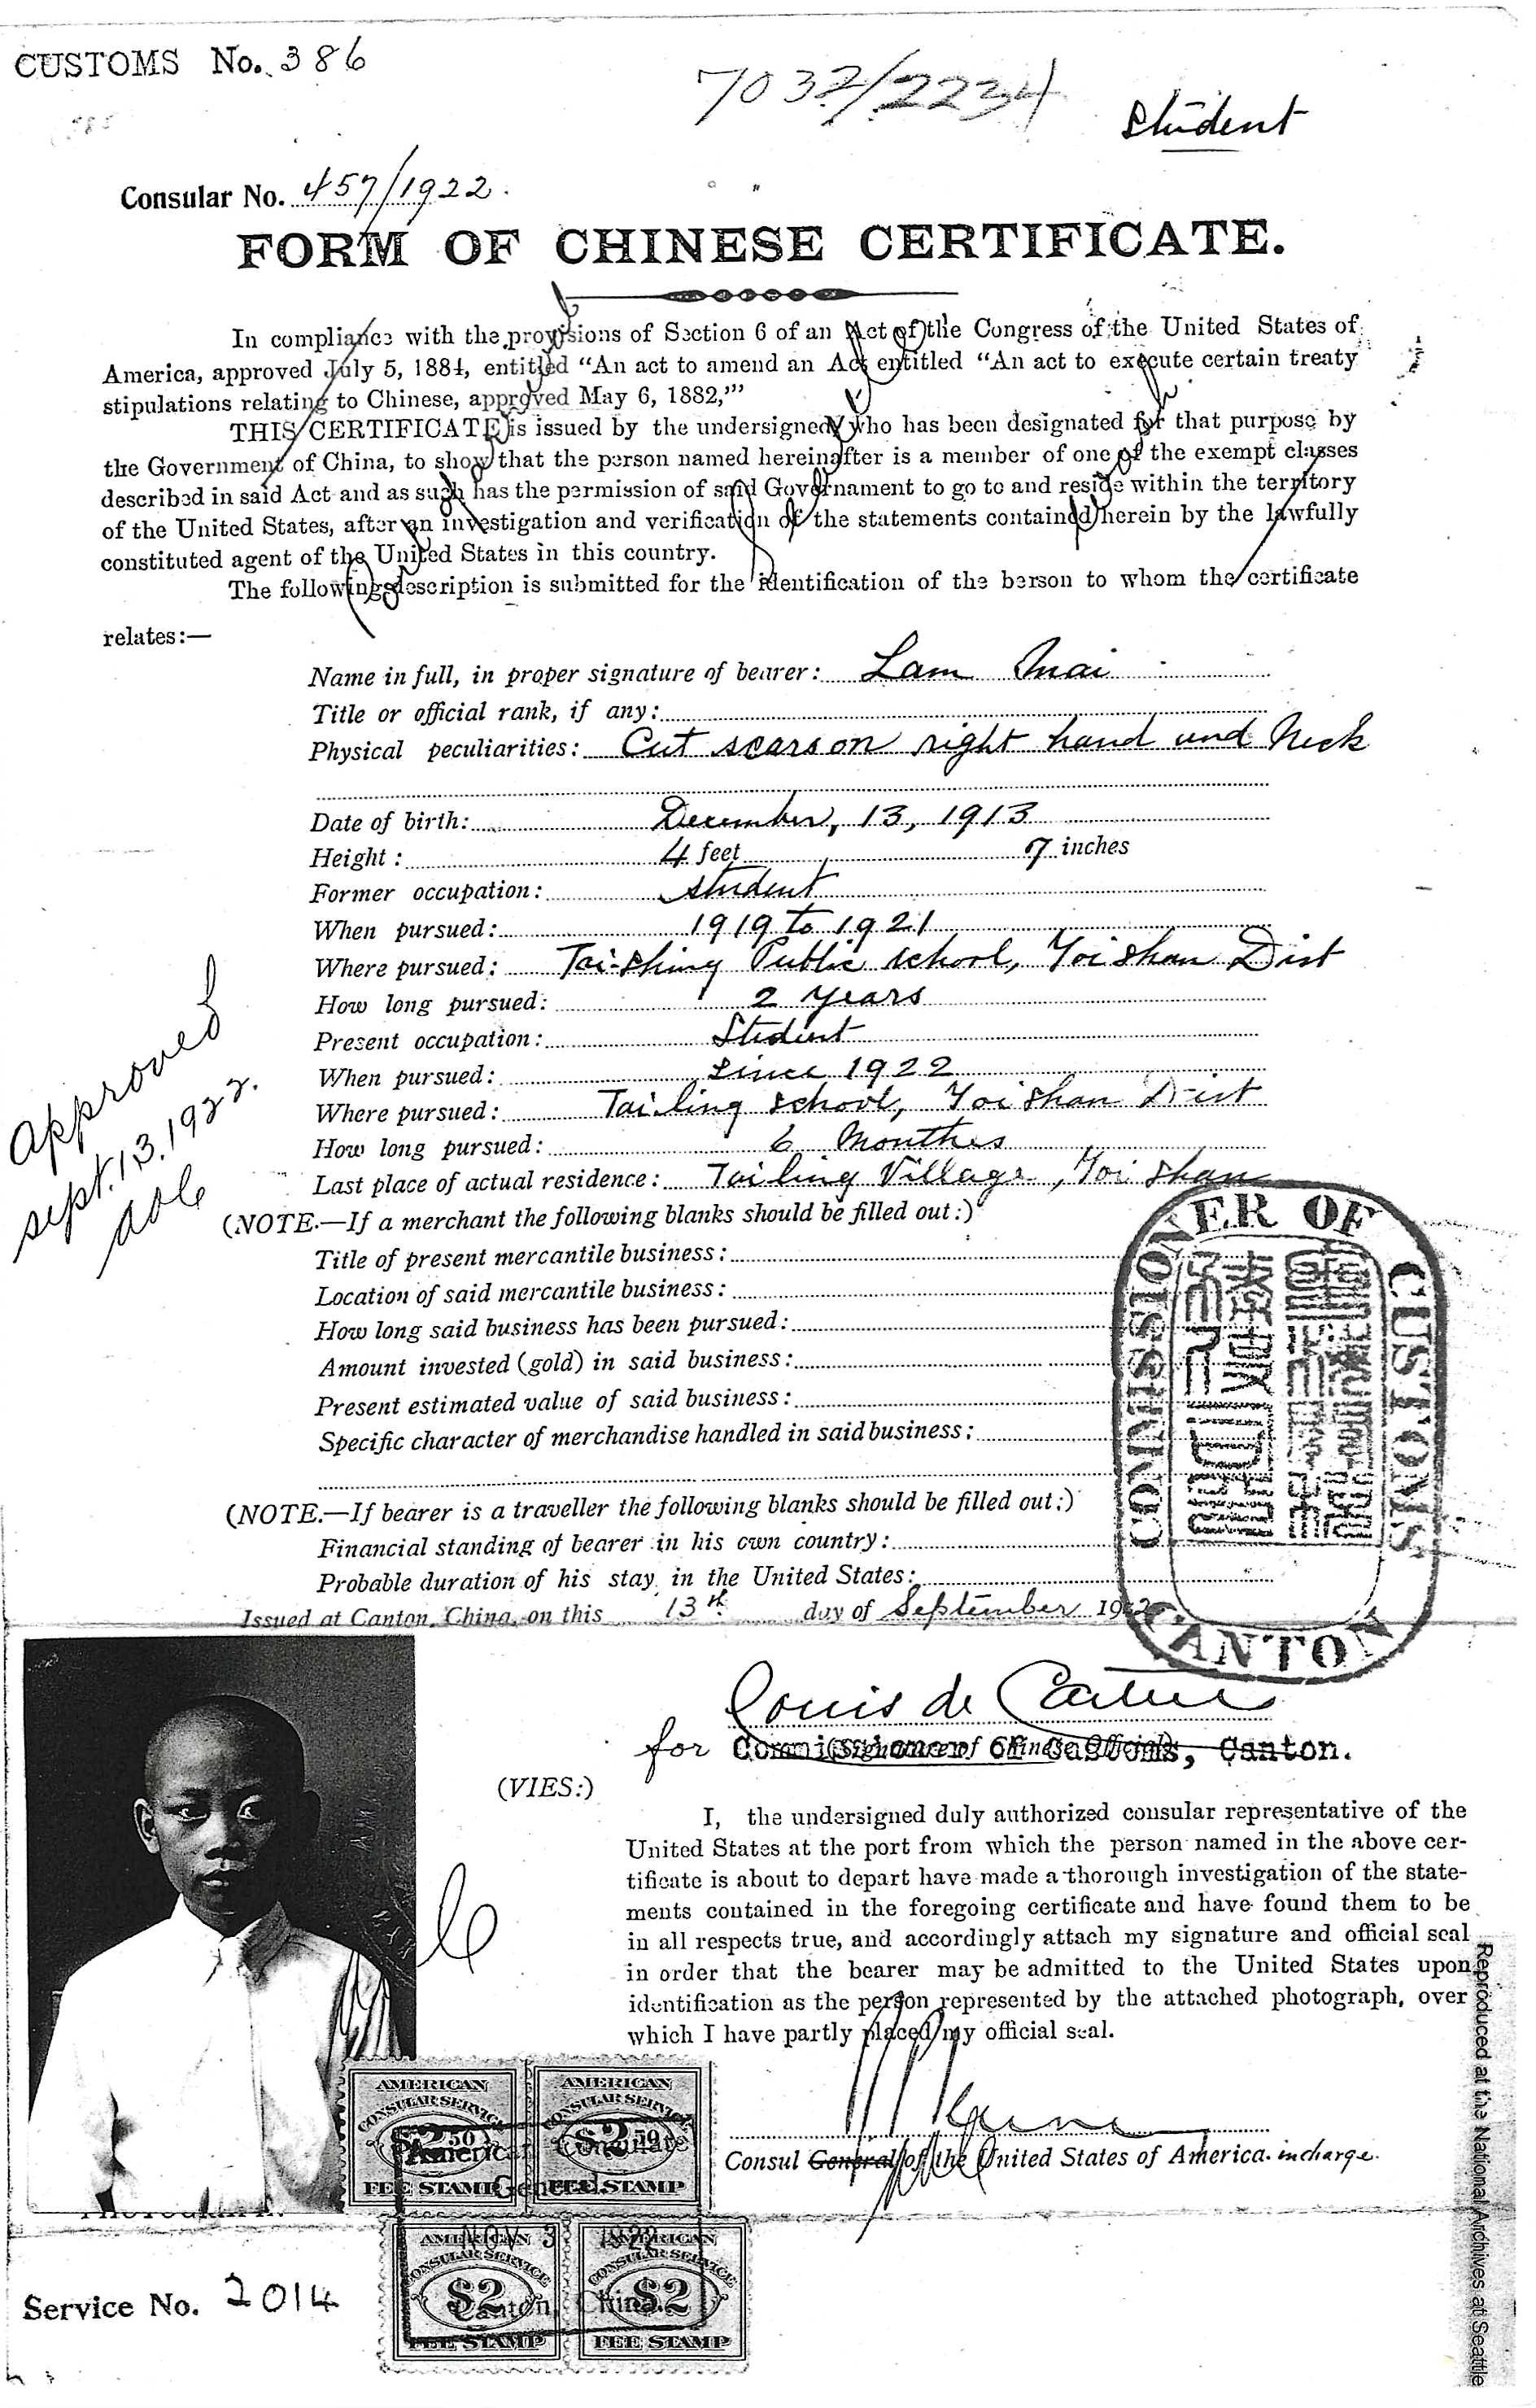 CUSTOMS No. 386
7032/2234
Student
Consular No. 457/1922.
FORM OF CHINESE CERTIFICATE.
In compliance with the provisions of Section 6 of an Act of the Congress of the United States of
America, approved July 5, 1884, entitled “An act to amend an Act entitled “An act to execute certain treaty
stipulations relating to Chinese, approved May 6, 1882,”’
THIS CERTIFICATE is issued by the undersigned who has been designated for that purpose by
the Government of China, to show that the person named hereinafter is a member of one of the exempt classes
described in said Act and as such has the permission of said Governament to go to and reside within the territory
of the United States, after an investigation and verification of the statements contained herein by the lawfully
constituted agent of the United States in this country.
The following description is submitted for the identification of the berson to whom the certificate
relates:—
Name in full, in proper signature of bearer: Lam Mai
Title or official rank, if any:
Physical peculiarities: Cut scars on right hand and Neck
Date of birth: December, 13, 1913
Height: 4 feet 7 inches
Former occupation: student
When pursued: 1919 to 1921
Where pursued: Tai-shing Public school, Toishan Dist
How long pursued: 2 years
Present occupation: Student
When pursued: since 1922
Where pursued: Tailing school, Toishan Dist
How long pursued: 6 Monthes
Last place of actual residence: Tailing Village, Toishan
Approved
Sept. 13. 1922.
(NOTE.—If a merchant the following blanks should be filled out:)
Title of present mercantile business:
Location of said mercantile business:
How long said business has been pursued:
Amount invested (gold) in said business:
Present estimated value of said business:
Specific character of merchandise handled in said business:
(NOTE.—If bearer is a traveller the following blanks should be filled out:)
Financial standing of bearer in his own country:
Probable duration of his stay in the United States:
Issued at Canton, China, on this 13th day of September 1922
COMMISSIONER OF CUSTOMS
CANTON
Louis de
for Commissioner of Customs, Canton.
(Signature of Chinese Official)
(VIES:)
I, the undersigned duly authorized consular representative of the
United States at the port from which the person named in the above cer-
tificate is about to depart have made a thorough investigation of the state-
ments contained in the foregoing certificate and have found them to be
in all respects true, and accordingly attach my signature and official seal
in order that the bearer may be admitted to the United States upon
identification as the person represented by the attached photograph, over
which I have partly placed my official seal.
Consul General of the United States of America. in charge.
AMERICAN CONSULAR SERVICE $2.50 FEE STAMP
AMERICAN CONSULAR SERVICE $2.50 FEE STAMP
American Consulate
General.
NOV 3 1922
Canton, China.
AMERICAN CONSULAR SERVICE $2 FEE STAMP
AMERICAN CONSULAR SERVICE $2 FEE STAMP
Service No. 2014
Reproduced at the National Archives at Seattle